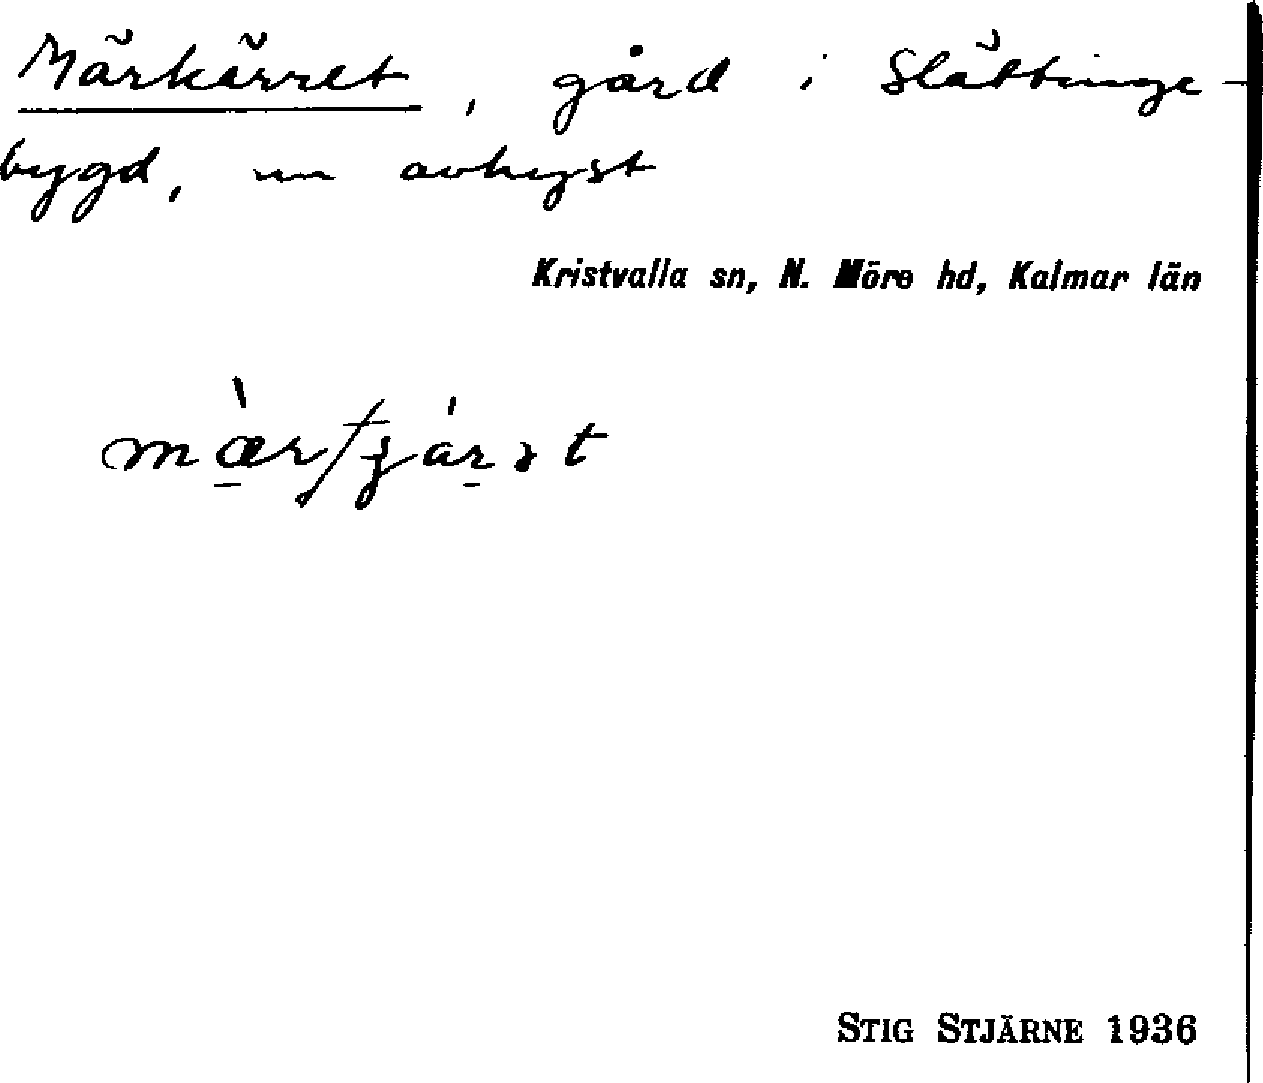 Märkärret, gård i Slättinge-
bygd, nu avhyst
Kristvalla sn, N. Möre hd, Kalmar län
STIG STJÄRNE 1936